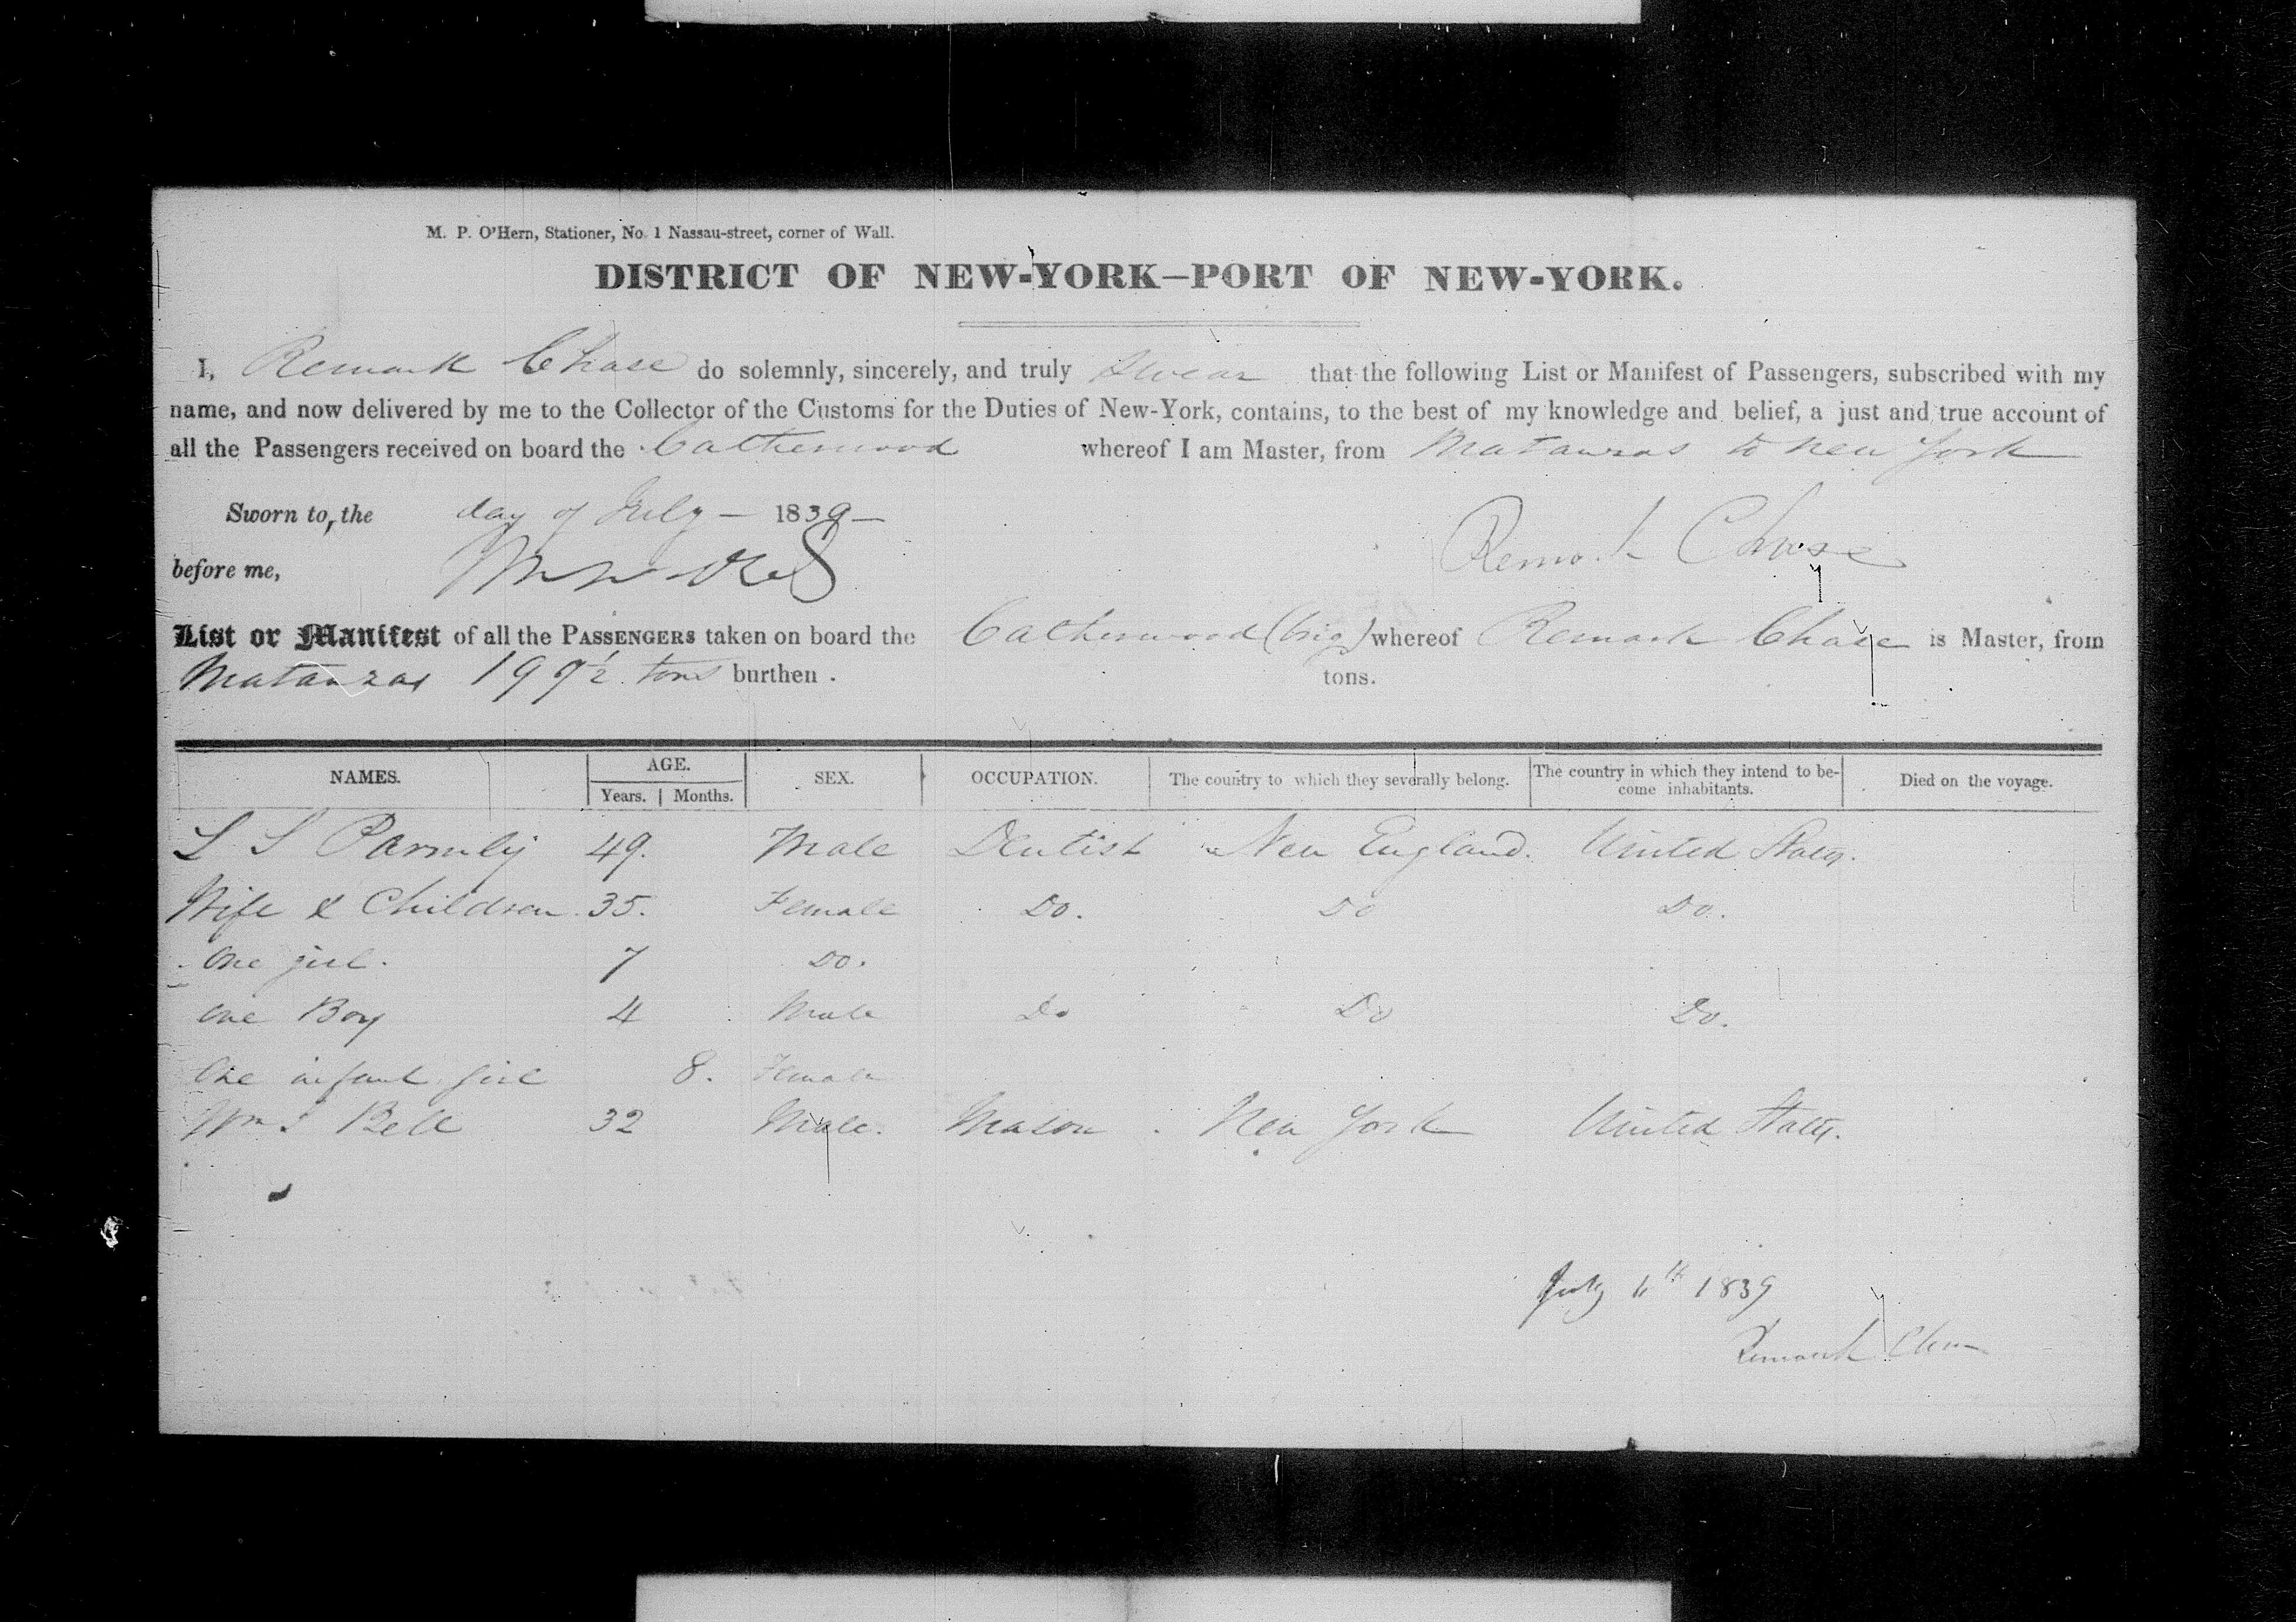 M. P. O'Hern, Stationer, No. 1 Nassau-street, corner of Wall.
DISTRICT OF NEW-YORK—PORT OF NEW-YORK.
I, Remark Chase do solemnly, sincerely, and truly swear that the following List or Manifest of Passengers, subscribed with my
name, and now delivered by me to the Collector of the Customs for the Duties of New-York, contains, to the best of my knowledge and belief, a just and true account of
all the Passengers received on board the Catherwood whereof I am Master, from Matanzas to New York
Sworn to, the day of July — 1839 —
Remark Chase
before me,
List or Manifest of all the PASSENGERS taken on board the Catherwood (brig) whereof Remark Chase is Master, from
Matanzas 197½ tons burthen . tons.
NAMES. AGE. Years. Months. SEX. OCCUPATION. The country to which they severally belong. The country in which they intend to become inhabitants. Died on the voyage.
L S Parmly 49. Male Dentist New England. United States.
Wife & Children 35. Female Do. Do Do.
One girl. 7 Do.
One Boy 4 Male Do Do Do.
One infant girl 8. Female
Wm S Bell 32 Male. Mason New York United States.
July 6th 1839
Remark Chase